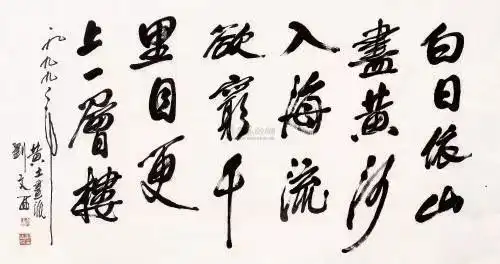 白日依山
盡黄河
入海流
欲窮千
里目更
上一層樓
黄土畫派
劉文西